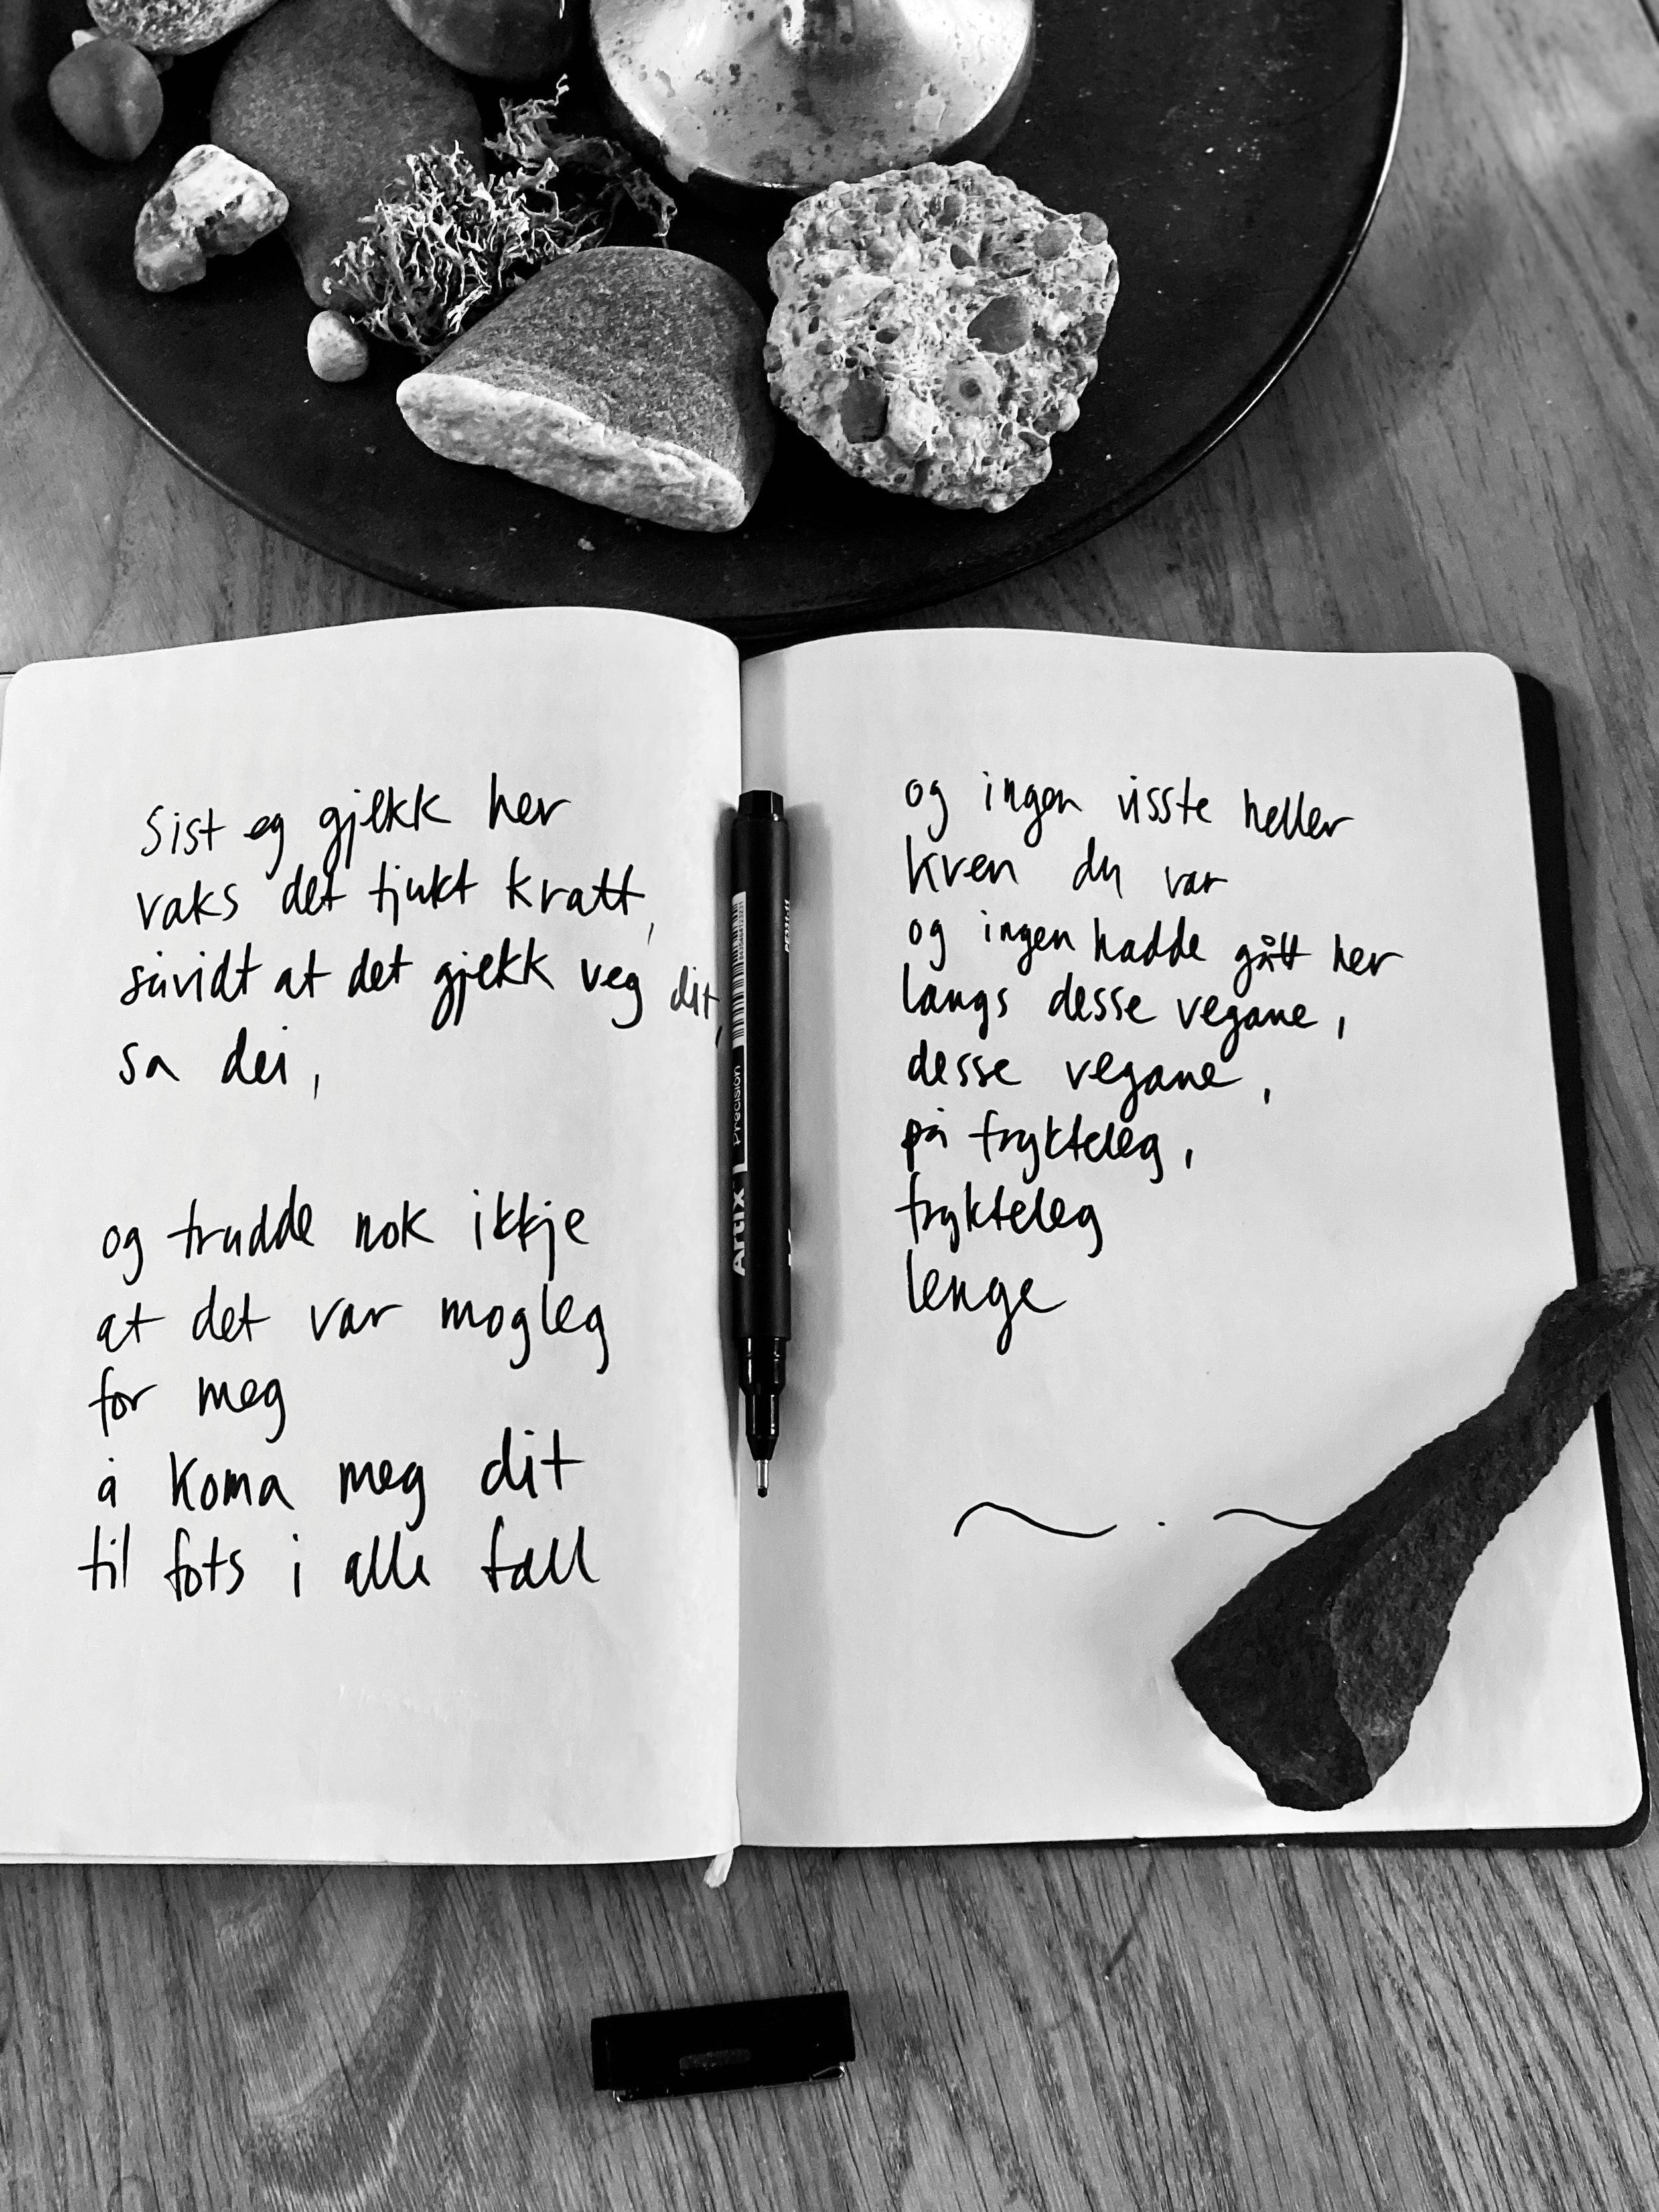 Sist eg gjekk her
vaks det tjukt kratt,
såvidt at det gjekk veg dit,
sa dei,
og trudde nok ikkje
at det var mogleg
for meg
å koma meg dit
til fots i alle fall
og ingen visste heller
kven du var
og ingen hadde gått her
langs desse vegane,
desse vegane,
på frykteleg,
frykteleg
lenge
Artix Precision